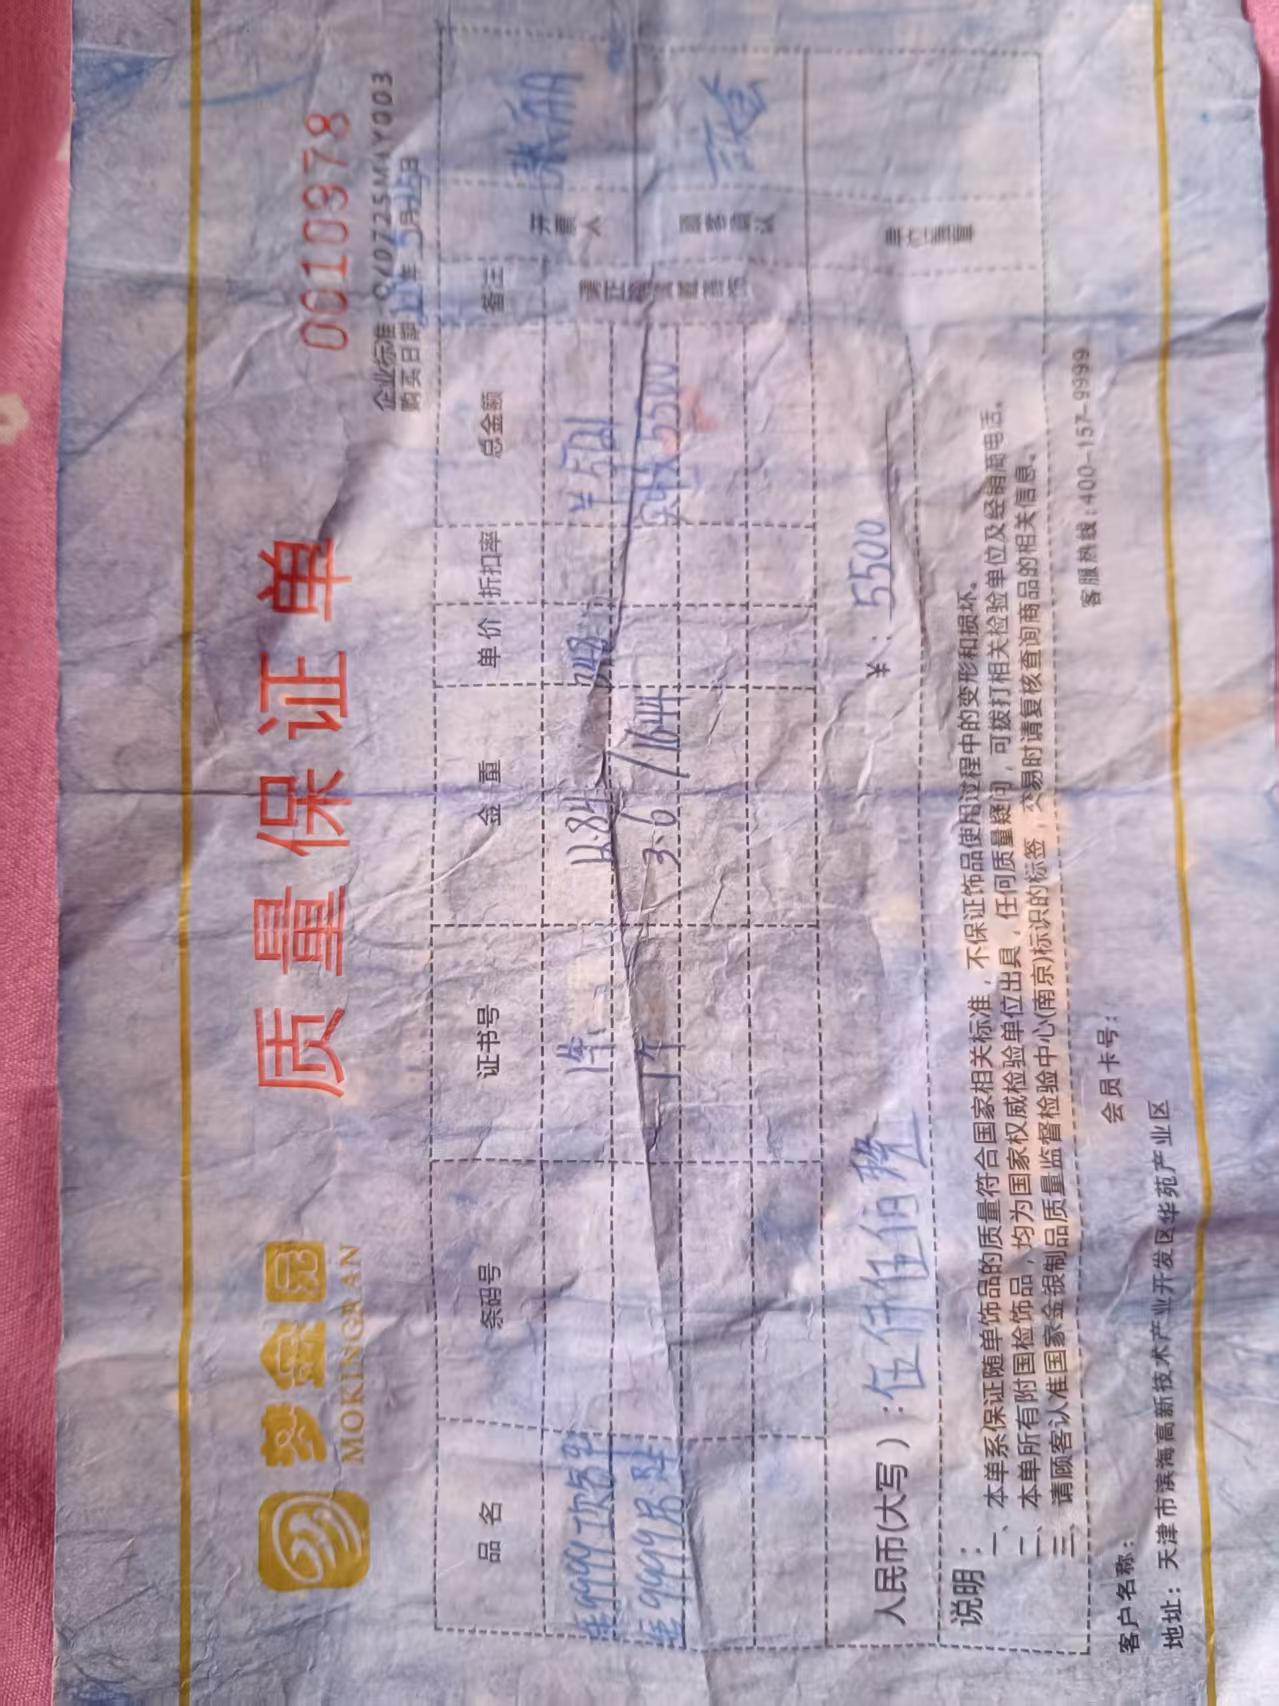 梦金园
MOKINGRAN
质量保证单
0010978
企业标准：Q/0725MJY003
购买日期 年5月 日
品名 条码号 证书号 金重 单价 折扣率 总金额 备注 开票人
足999 1件
足999 1个 3.6 / 1644 5500
顾客确认
单位盖章
人民币(大写)：伍仟伍佰 ¥：5500
说明：
一、本单系保证随单饰品的质量符合国家相关标准，不保证饰品使用过程中的变形和损坏。
二、本单所有附国检饰品，均为国家权威检验单位出具，任何质量疑问，可拨打相关检验单位及经销商电话。
三、请顾客认准国家金银制品质量监督检验中心(南京)标识的标签，交易时请复核查询商品的相关信息。
客户名称： 会员卡号： 客服热线:400-157-9999
地址：天津市滨海高新技术产业开发区华苑产业区